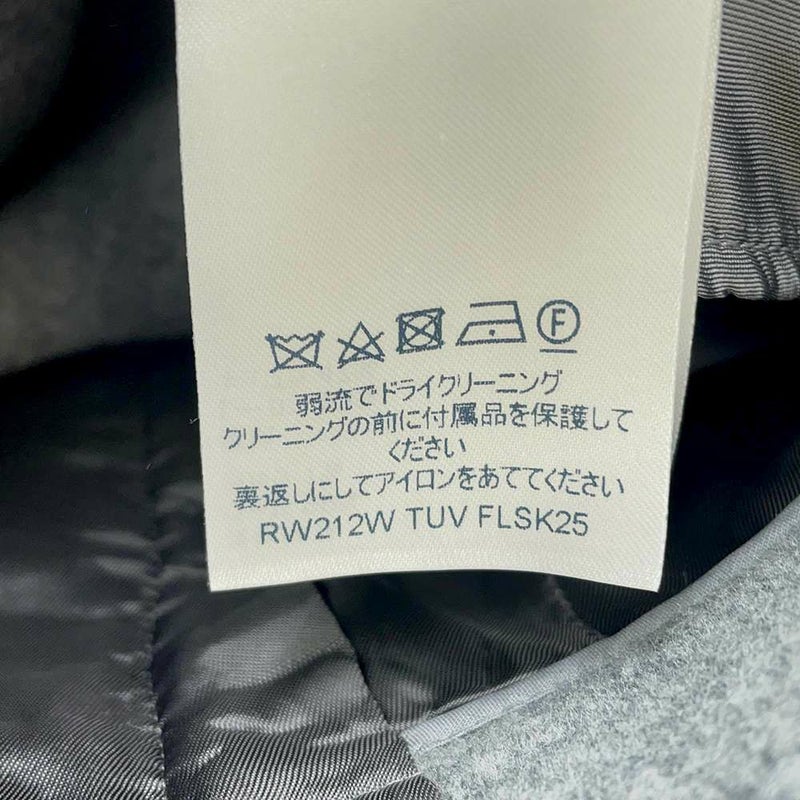 F
弱流でドライクリーニング
クリーニングの前に付属品を保護して
ください
裏返しにしてアイロンをあててください
RW212W TUV FLSK25